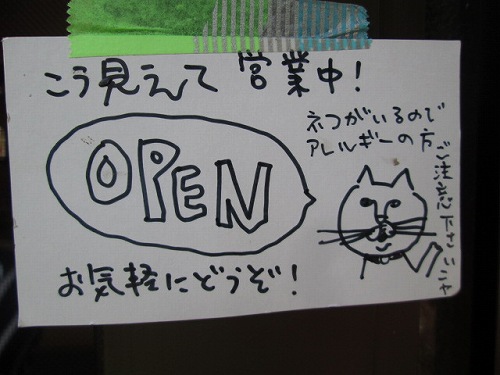 こう見えて 営業中！
OPEN
ネコがいるので
アレルギーの方
ご注意下さいニャ
お気軽にどうぞ！